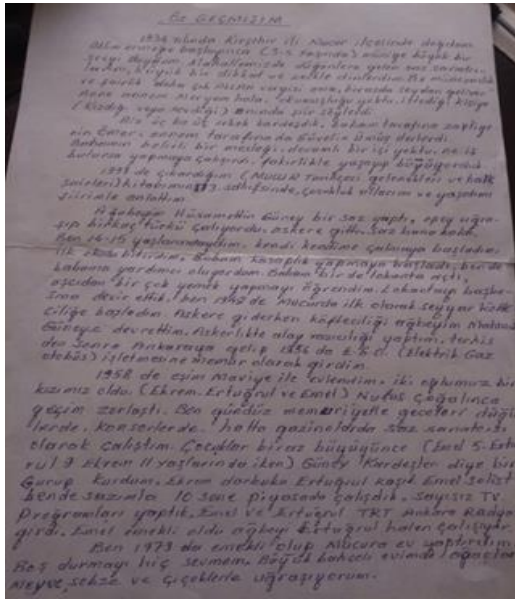 ÖZ GEÇMİŞİM
1934 yılında Kırşehir ili Mucur ilçesinde doğdum
Aklım ermeğe başlayınca (3-5 yaşında) müziğe büyük bir
sevgi duydum. Mahallemizde düğünlere gelen saz sanatcı-
larını, büyük bir dikkat ve zevkle dinlerdim. Bu müzisyenlik
ve şairlik daha çok Allah vergisi ama, biraz da soydan gelme
Anne annem Meryem hala, okumuşluğu yoktu, istediği kişiye
(Kızdığı veya sevdiği) anında şiir söylerdi
Biz üç kız üç erkek kardeşdik, babam tarafına zaptiye-
nin Ömer, annem tarafına da Güvelin ümüş derlerdi
Babamın belirli bir mesleği, devamlı bir işi yoktu, ne iş
bulursa yapmaya çalışırdı, fakirlikle yaşayıp büyüyorduk
çıkardığım (Mucur Tanıtması gelenekleri ve halk
şairleri) kitabımın sahifesinde, çocukluk yıllarım ve yaşantımı
şiirimle anlattım
Ağabeyim Hüsamettin Güney bir saz yaptı, epey uğra-
şıp birkaç türkü çalıyordu, askere gitti, saz bana kaldı.
Ben 14-15 yaşlarındaydım, kendi kendime çalmaya başladım,
ilk okulu bitirdim, Babam kasaplık yapmaya başladı, ben de
babama yardımcı oluyordum. Babam bir de lokanta açtı,
aşcıdan bir çok yemek yapmayı öğrendim. Lokantayı başka-
sına devir ettik, ben de Mucurda ilk olarak seyyar köfte
ciliğe başladım Askere giderken köfteciliği ağbeyim Mahmut
Güneye devrettim. Askerlikte alay yazıcılığı yaptım, terhis
den sonra Ankaraya gelip 1956 da E.G.O. (Elektrik Gaz
otobüs) işletmesine memur olarak girdim.
1958 de eşim Maviye ile evlendim, iki oğlumuz bir
kızımız oldu. (Ekrem, Ertuğrul ve Emel) Nufus çoğalınca
geçim zorlaştı. Ben gündüz memuriyette geceleri düğün
lerde, konserlerde, hatta gazinolarda saz sanatcısı
olarak çalıştım. Çocuklar biraz büyüyünce (Emel 5-Ertuğ
rul 9 Ekrem 11 yaşlarında iken) Güney Kardeşler diye bir
Gurup kurdum, Ekrem darbuka Ertuğrul kaşık Emel solist
bende sazımla 10 sene piyasada çalışdık, sayısız TV.
Programları yaptık, Emel ve Ertuğrul TRT Ankara Radyo
girdi. Emel emekli oldu ağbeyi Ertuğrul halen çalışıyor.
Ben 1979 da emekli olup Mucura ev yaptırdım
Boş durmayı hiç sevmem. Büyük bahçeli evimde ağaçlar
Meyve, sebze ve çiçeklerle uğraşıyorum.